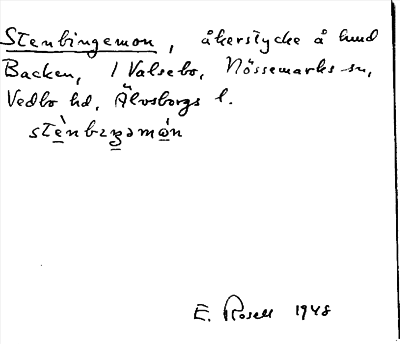 Stenbingemon, åkerstycke å hmd
Backen, 1 Valsebo, Nössemarks sn,
Vedbo hd, Älvsborgs l.
stènbıŋəmòn
E. Rosell 1948